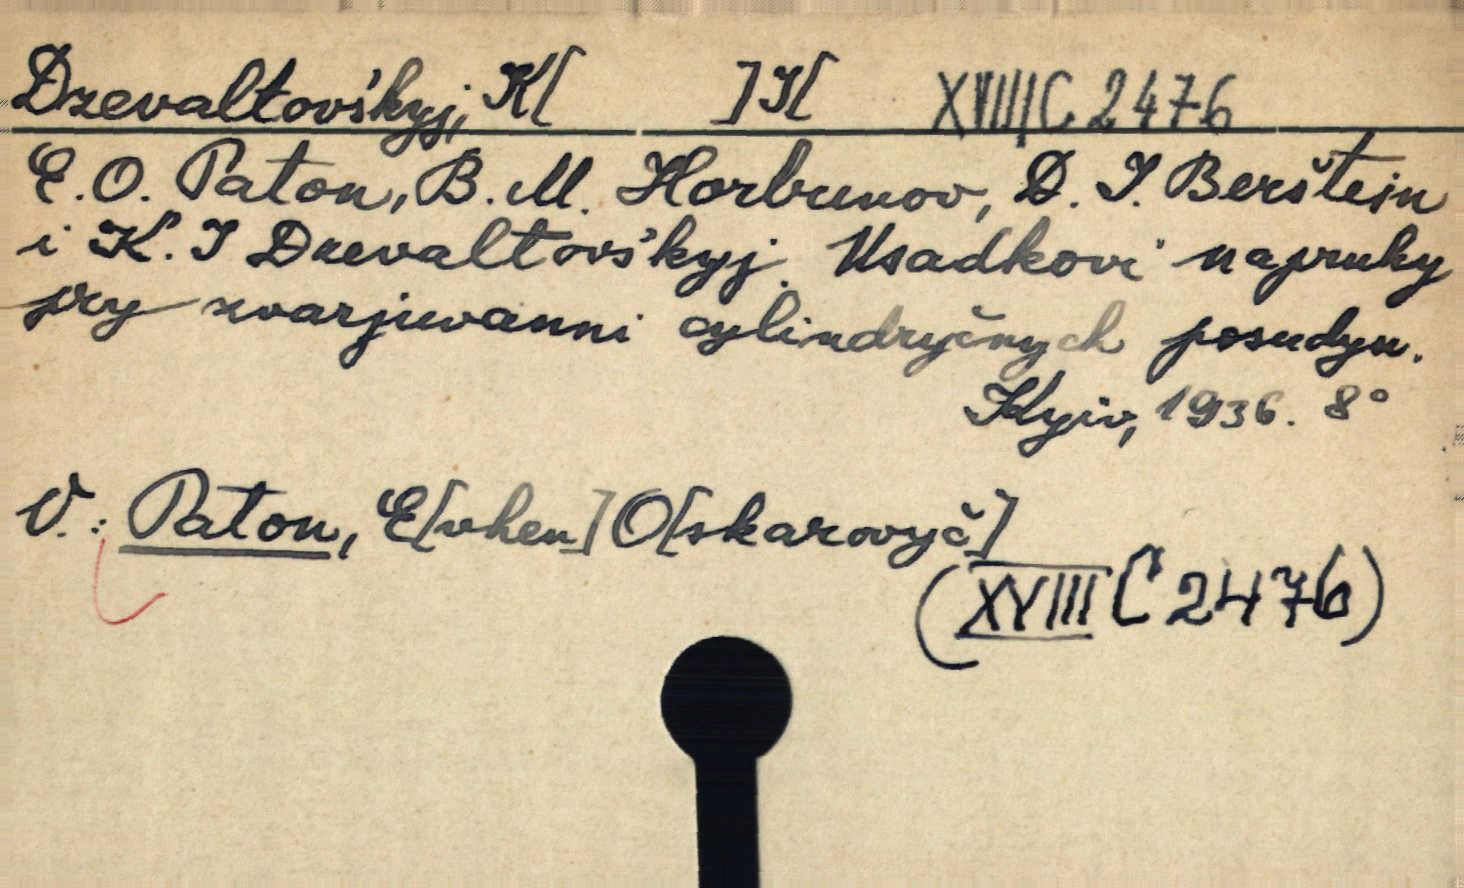 Dzevaltovśkyj, K[ ]I[ XVIII C 2476
E. O. Paton, B. M. Horbunov, D. I. Berštejn
i K. I Dzevaltovśkyj. Usadkovi napruhy
pry zvarjuvanni cylindryčnych posudyn.
Kyiv, 1936. 8°
V.: Paton, E[vhen] O[skarovyč]
(XVIII C 2476)